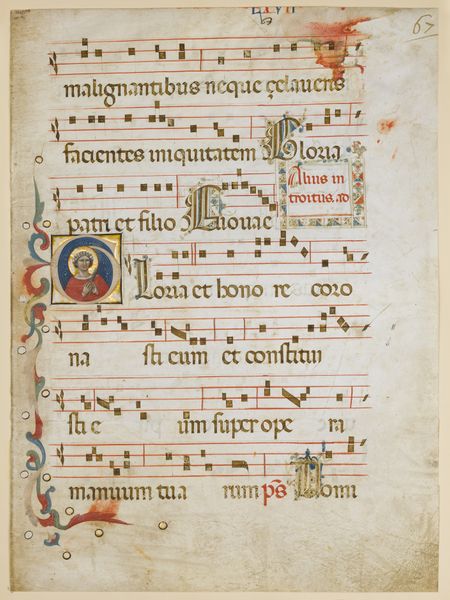 LVII
67
malignantibus neque çelaveris
facientes iniquitatem Gloria
Alius in
troitus. ad
patri et filio Euovae
Gloria et hono re coro
na sti eum et constitui
sti e um super ope ra
manuum tua rum ps Domi